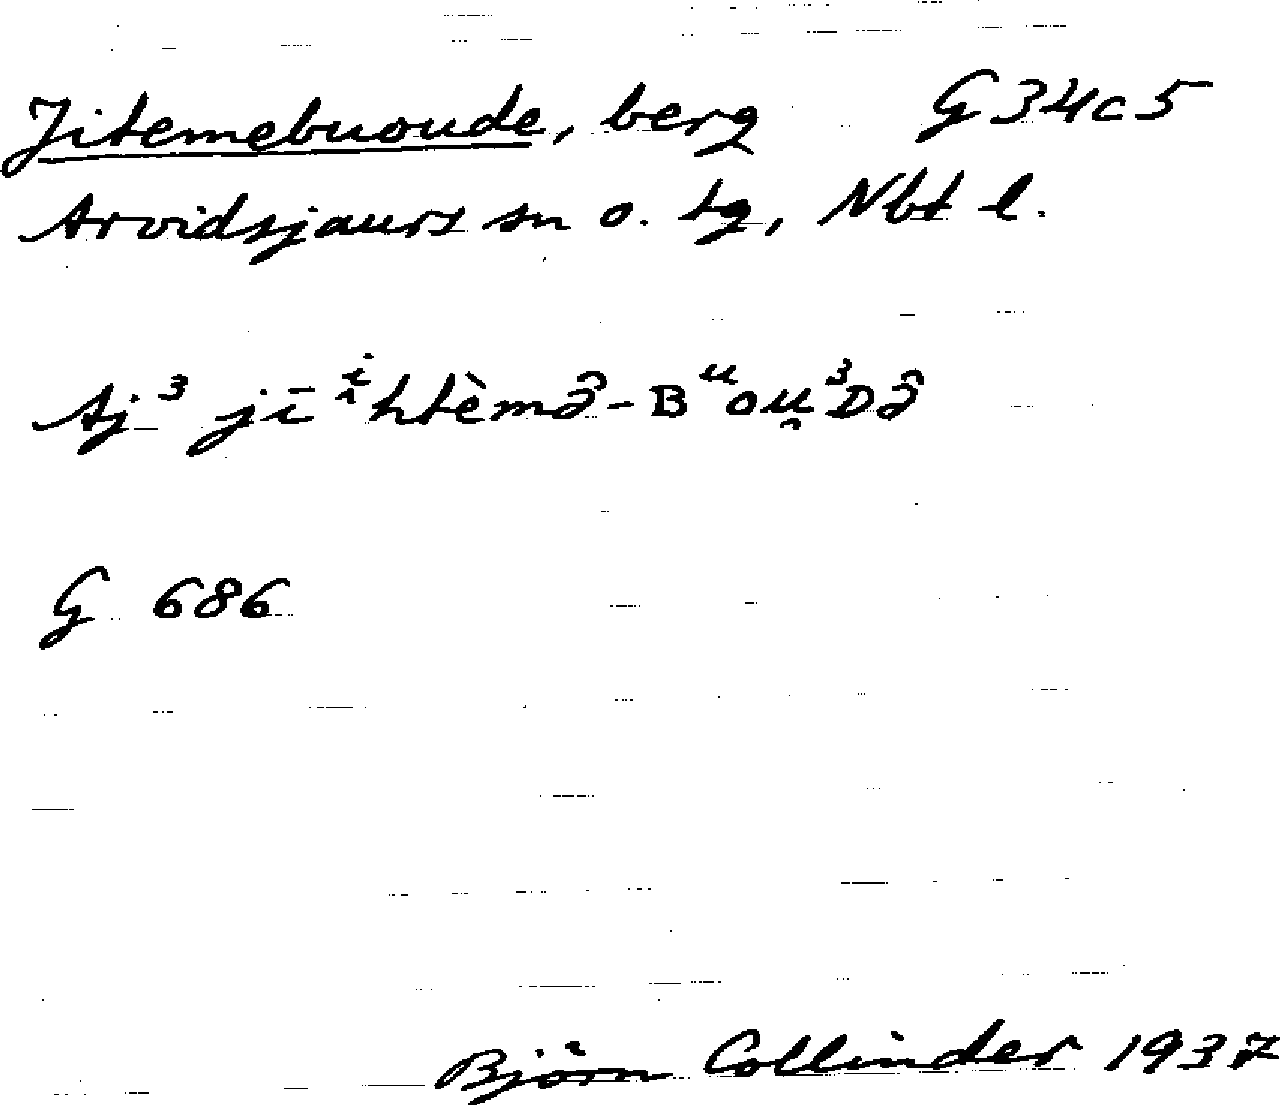 Jitemebuoude, berg G34c5
Arvidsjaurs sn o. tg, Nbt l.
Aj³ jīⁱihtèmə̂-Bᵘou̯³Də̂
G 686
Björn Collinder 1937